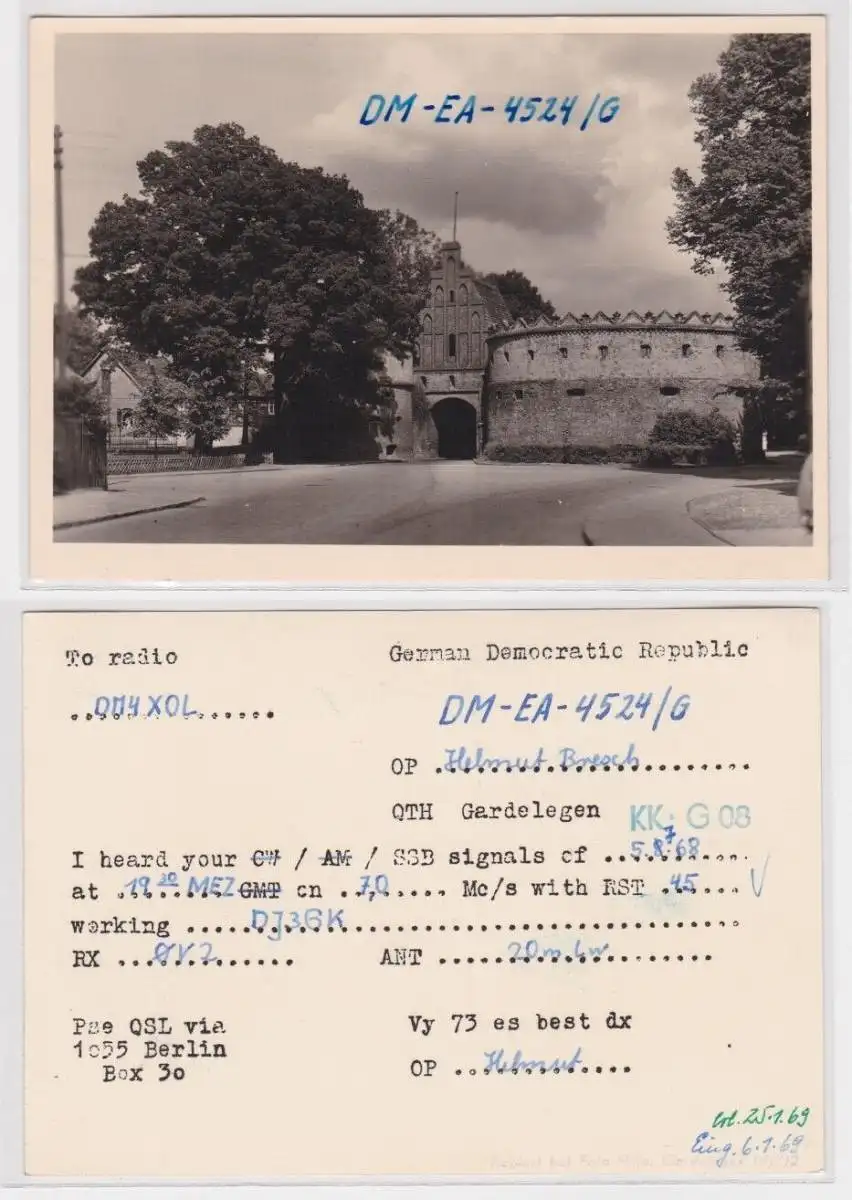 DM-EA-4524/G
To radio
German Democratic Republic
DM4XOL
DM-EA-4524/G
OP Helmut Bresch
QTH Gardelegen KK: G 08
I heard your CW / AM / SSB signals of 5.8.68
7
at 19 30 MEZ GMT on 7,0 Mc/s with RST 45 V
working DJ3GK
RX ØV2 ANT 20m Lw
Pse QSL via Vy 73 es best dx
1055 Berlin
Box 3o OP Helmut
25.1.69
Eing. 6.1.69